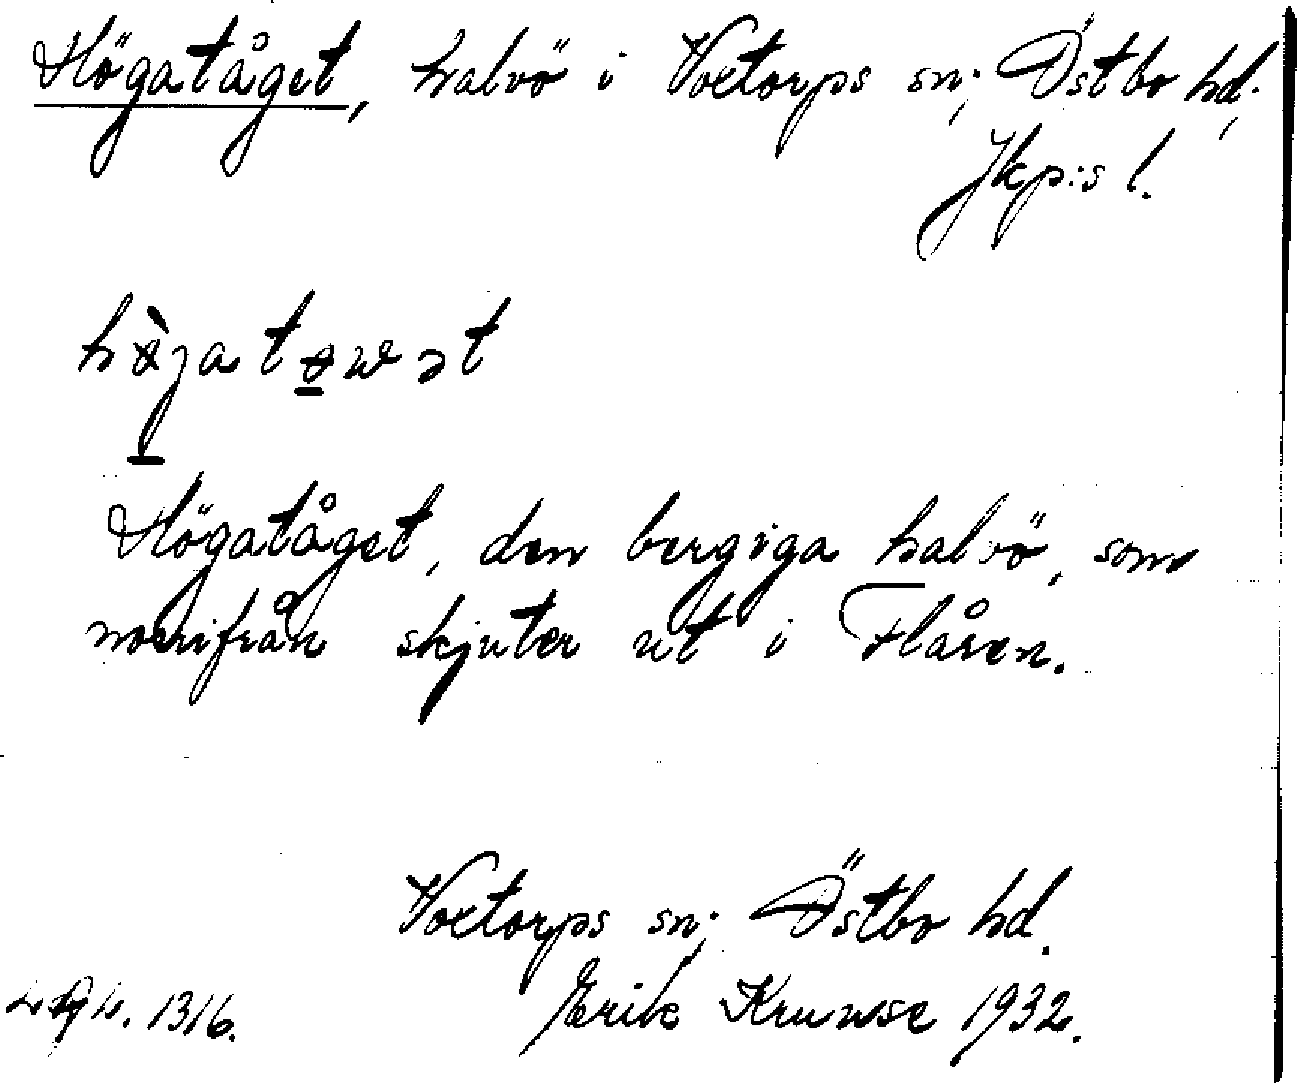 Högatåget, halvö i Voxtorps sn; Östbo hd;
Jkp:s l.
Högatåget, den bergiga halvö, som
norrifrån skjuter ut i Flåren.
Voxtorps sn; Östbo hd.
1316. Erik Kruuse 1932.